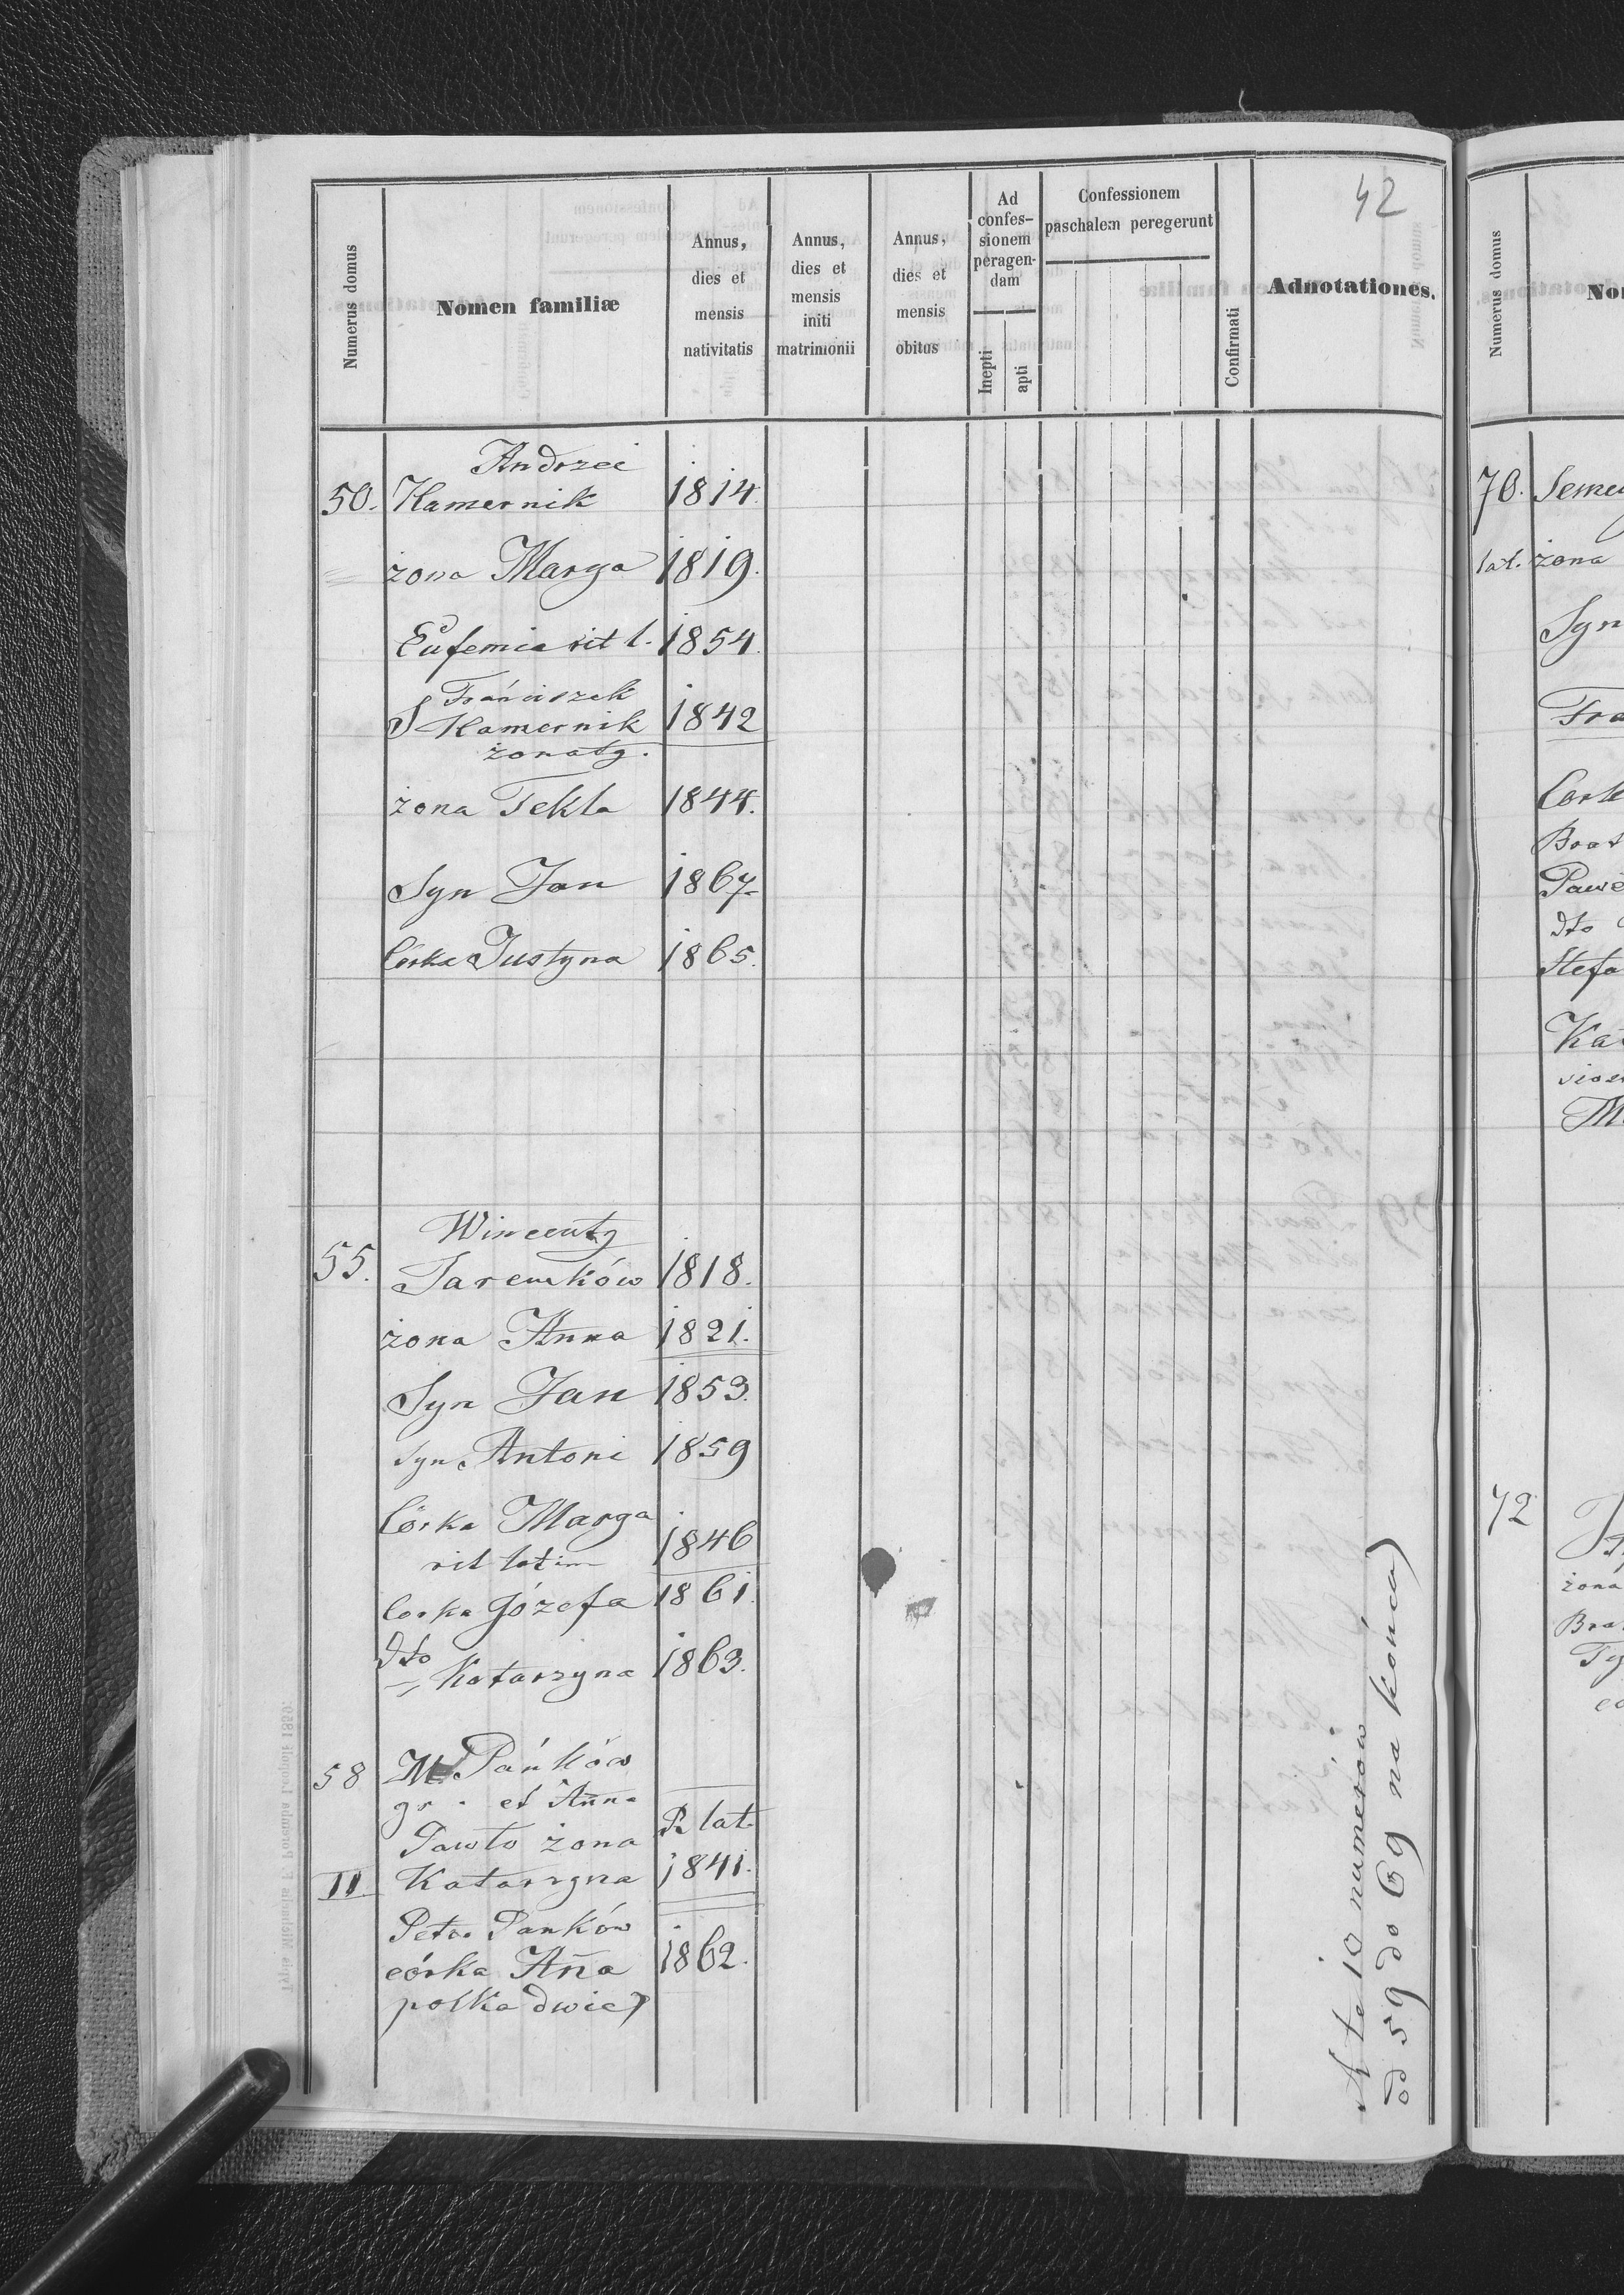 42
Numerus domus
Nomen familiæ
Annus,
dies et
mensis
nativitatis
Annus,
dies et
mensis
initi
matrimonii
Annus,
dies et
mensis
obitus
Ad
confes-
sionem
peragen-
dam
Inepti
apti
Confessionem
paschalem peregerunt
Confirmati
Adnotationes.
Andrzei
50. Hamernik 1814.
żona Marya 1819.
Eufemia rit l. 1854.
Franciszek
S Hamernik 1842
żonaty.
żona Tekla 1844.
Syn Jan 1867.
Córka Justyna 1865.
Wincenty
55. Jaremków 1818.
żona Anna 1821.
Syn Jan 1853.
Syn Antoni 1859
Córka Marya
rit latin 1846
Corka Józefa 1861.
dto Katarzyna 1863.
58 Pańków
gr. et Anna
Pawło żona R lat.
II Katarzyna 1841.
Petro Panków
córka Ana 1862.
polka dwie)
A te 10 numerów
od 59 do 69 na końcu)
Numerus domus
No
70. Seme
lat. żona
Syn
Fra
Cork
Brat
Pawe
dto
Stefa
Ka
M
72
żona
Bra